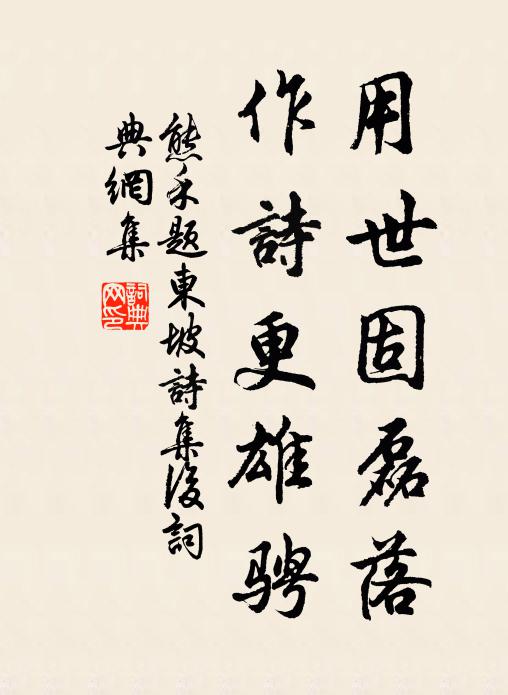 用世固磊落
作詩更雄騁
熊禾題東坡詩集後詞
典網集
詞典
网印